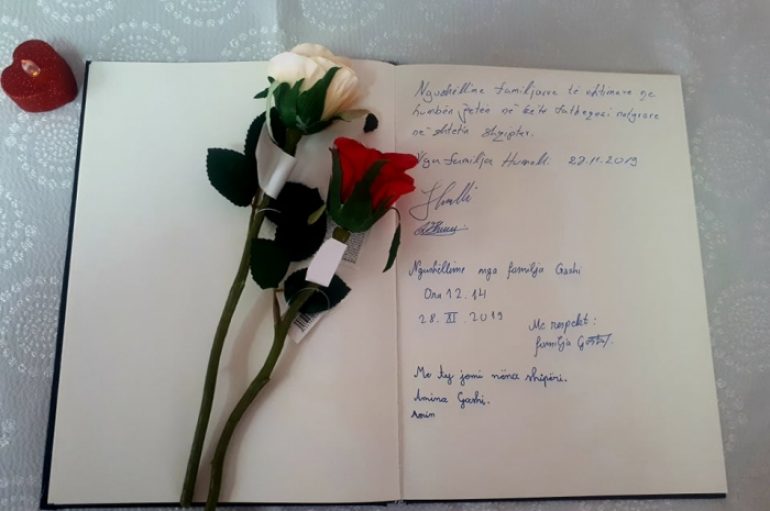 Ngushëllime familjarve të
humbën jetën në këtë fatkeqësi natyrore
në shtetin shqiptar.
Nga familja 27.11.2019
Ngushëllime nga familja Gashi
Ora 12.14
28. XI. 2019
Me respekt:
familja
Me ty jemi nëna shipëri.
Amina Gashi.